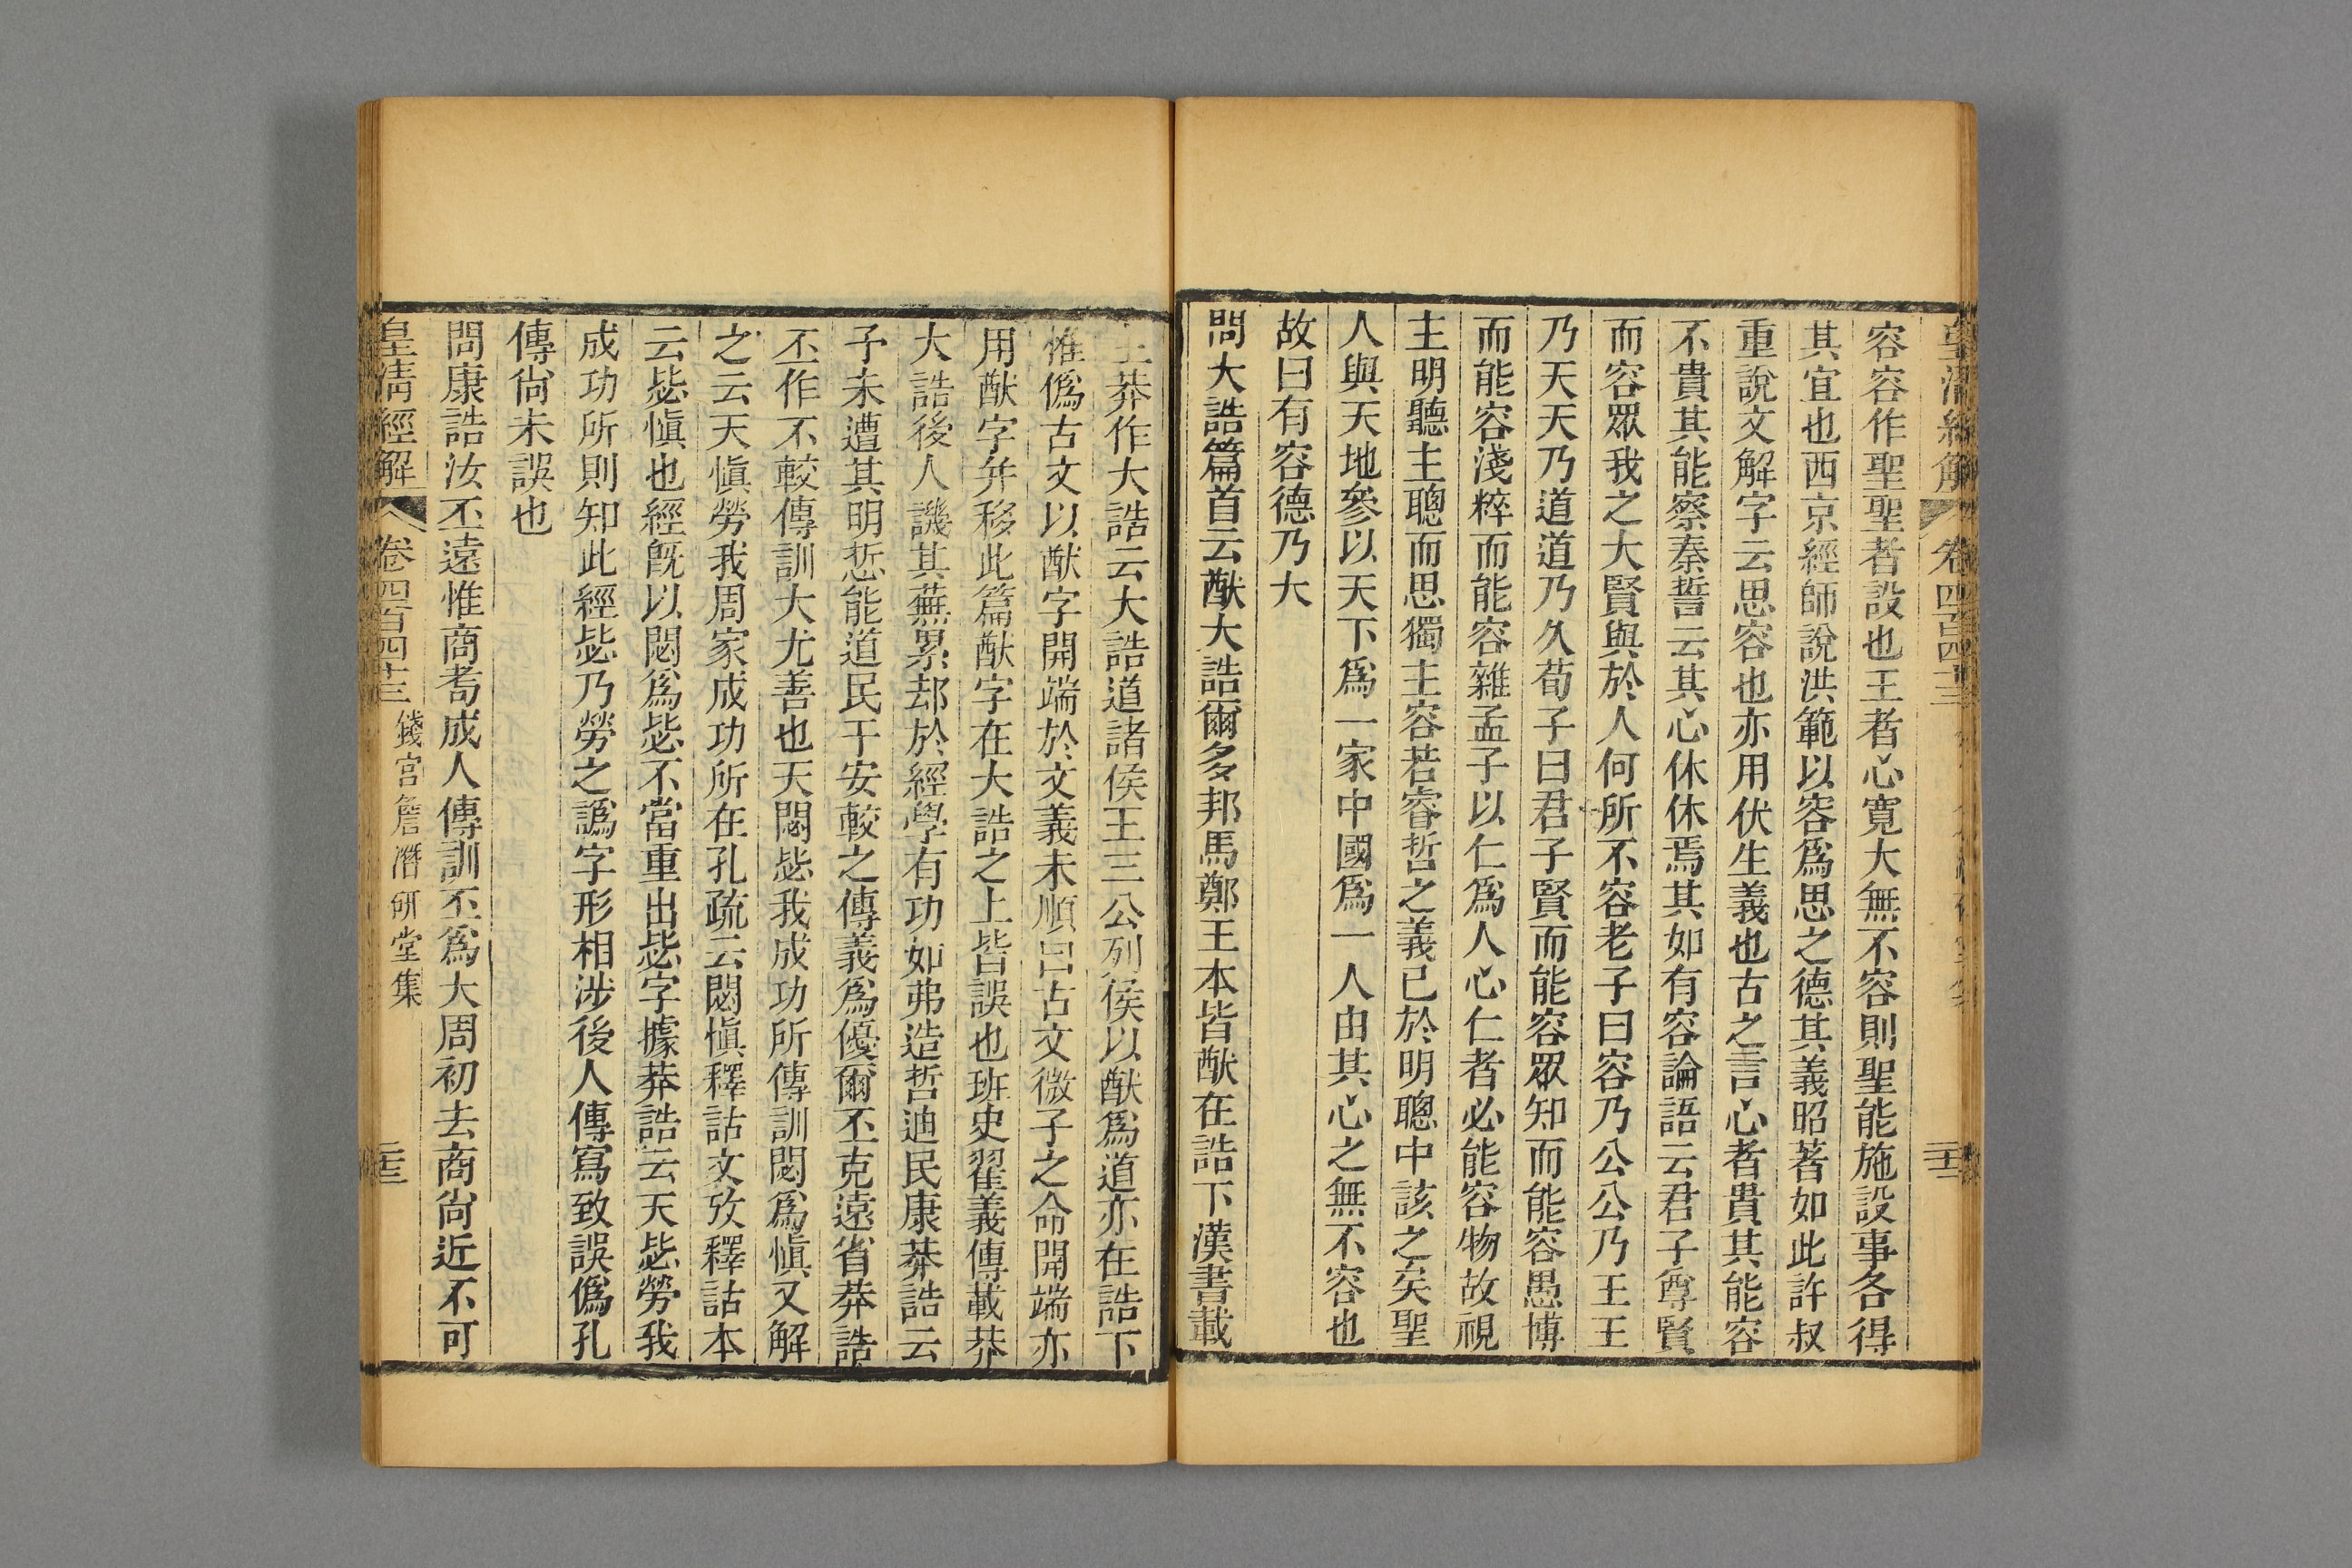 皇清經解 卷四百四十三
二十二
容容作聖聖者設也王者心寬大無不容則聖能施設事各得
其宜也西京經師說洪範以容爲思之德其義昭著如此許叔
重說文解字云思容也亦用伏生義也古之言心者貴其能容
不貴其能察秦誓云其心休休焉其如有容論語云君子尊賢
而容眾我之大賢與於人何所不容老子曰容乃公公乃王王
乃天天乃道道乃久荀子曰君子賢而能容眾知而能容愚博
而能容淺粹而能容雜孟子以仁爲人心仁者必能容物故視
主明聽主聰而思獨主容若睿哲之義已於明聰中該之矣聖
人與天地參以天下爲一家中國爲一人由其心之無不容也
故曰有容德乃大
問大誥篇首云猷大誥爾多邦馬鄭王本皆猷在誥下漢書載
王莽作大誥云大誥道諸侯王三公列侯以猷爲道亦在誥下
惟僞古文以猷字開端於文義未順曰古文微子之命開端亦
用猷字并移此篇猷字在大誥之上皆誤也班史翟義傳載莽
大誥後人譏其蕪累却於經學有功如弗造哲迪民康莽誥云
予未遭其明悊能道民于安較之傳義爲優爾丕克遠省莽誥
丕作不較傳訓大尤善也天閟毖我成功所傳訓閟爲愼又解
之云天愼勞我周家成功所在孔疏云閟愼釋詁文攷釋詁本
云毖愼也經旣以閟爲毖不當重出毖字據莽誥云天毖勞我
成功所則知此經毖乃勞之譌字形相涉後人傳寫致誤僞孔
傳尙未誤也
問康誥汝丕遠惟商耉成人傳訓丕爲大周初去商尙近不可
皇清經解 卷四百四十三 錢宮詹潛研堂集
二十三